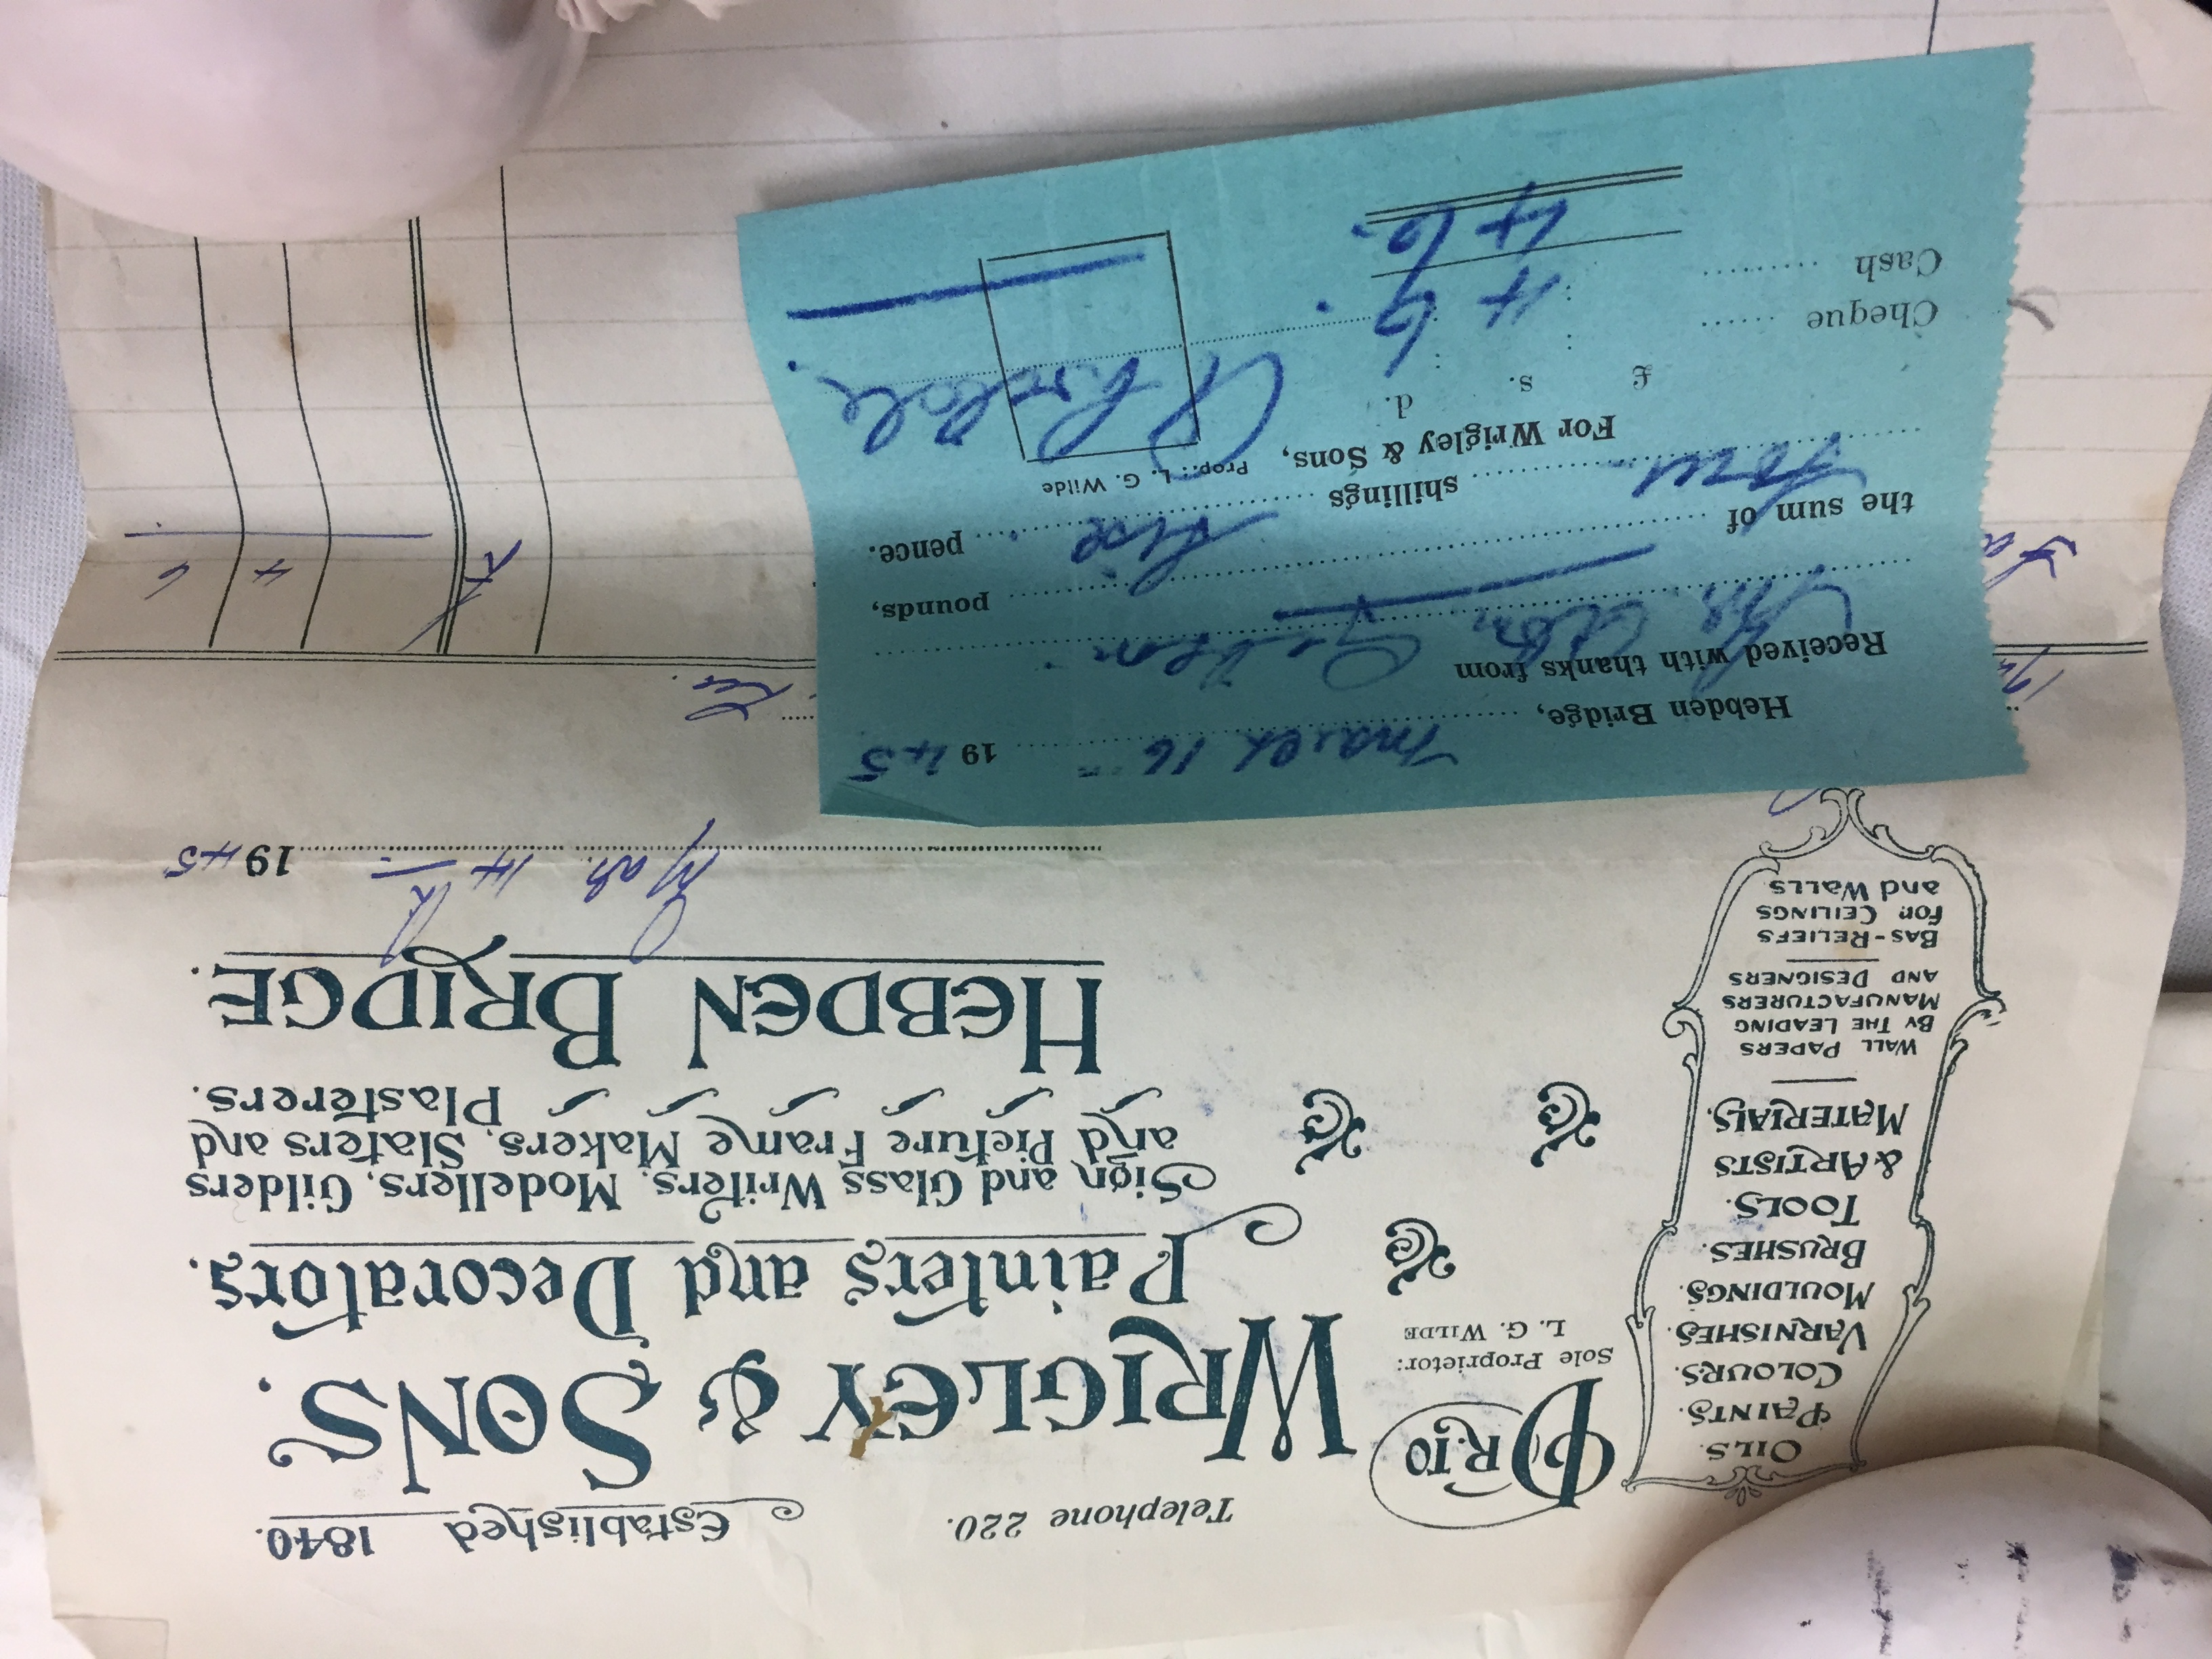 Established 1840.
Telephone 220.
DR. TO
WRIGLEY & SONS.
Sole Proprietor:
L. G. WILDE
Painters and Decorators.
Sign and Glass Writers, Modellers, Gilders
and Picture Frame Makers, Slaters and
Plasterers.
HEBDEN BRIDGE.
OILS.
PAINTS.
COLOURS.
VARNISHES.
MOULDINGS.
BRUSHES.
TOOLS.
& ARTISTS
MATERIALS.
WALL PAPERS
BY THE LEADING
MANUFACTURERS
AND DESIGNERS
BAS-RELIEFS
FOR CEILINGS
AND WALLS
Mar. 14th 1945
4 6
Hebden Bridge, March 16 1945
Received with thanks from
pounds,
the sum of four shillings six pence.
For Wrigley & Sons,
Prop.: L. G. Wilde
£ s. d.
Cheque 4 6
Cash
4 6